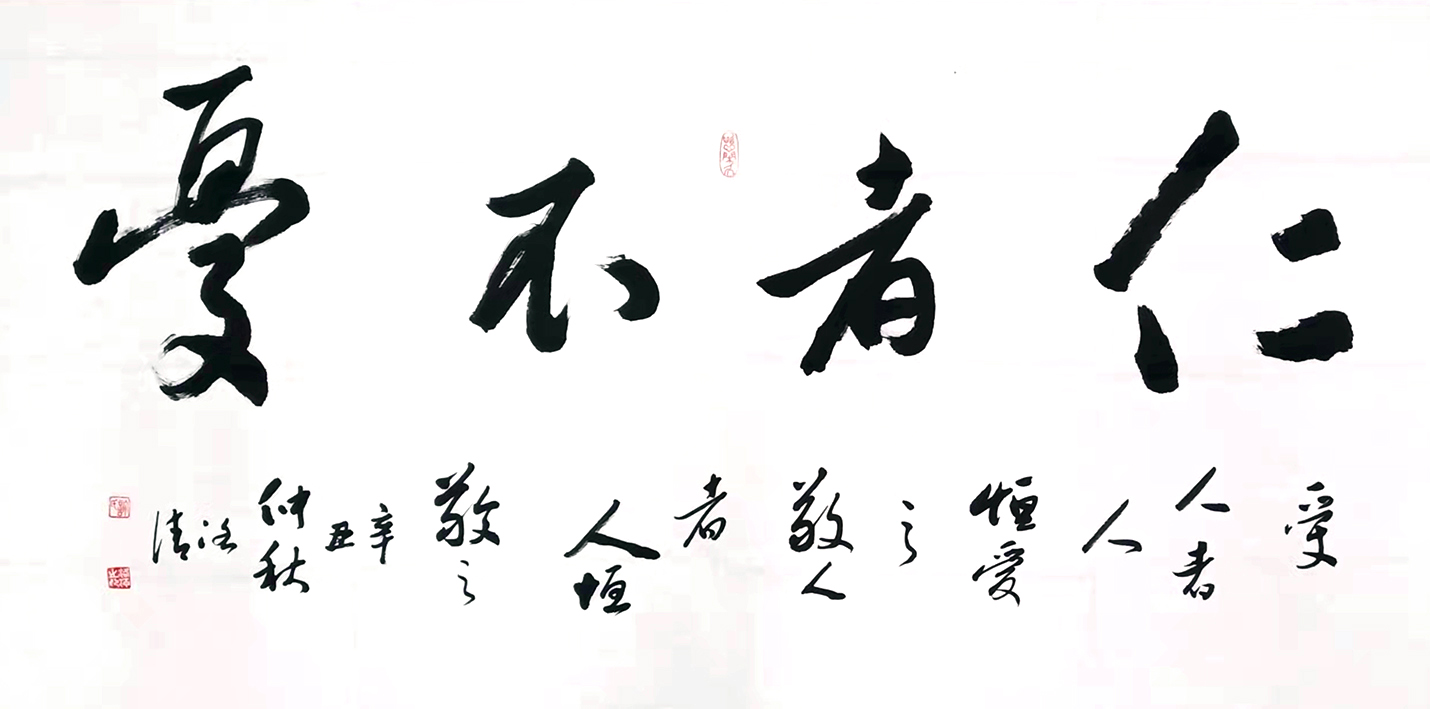 仁者不憂
愛
人者
人
恒愛
之
敬人
者
人恒
敬之
辛丑
仲秋
清